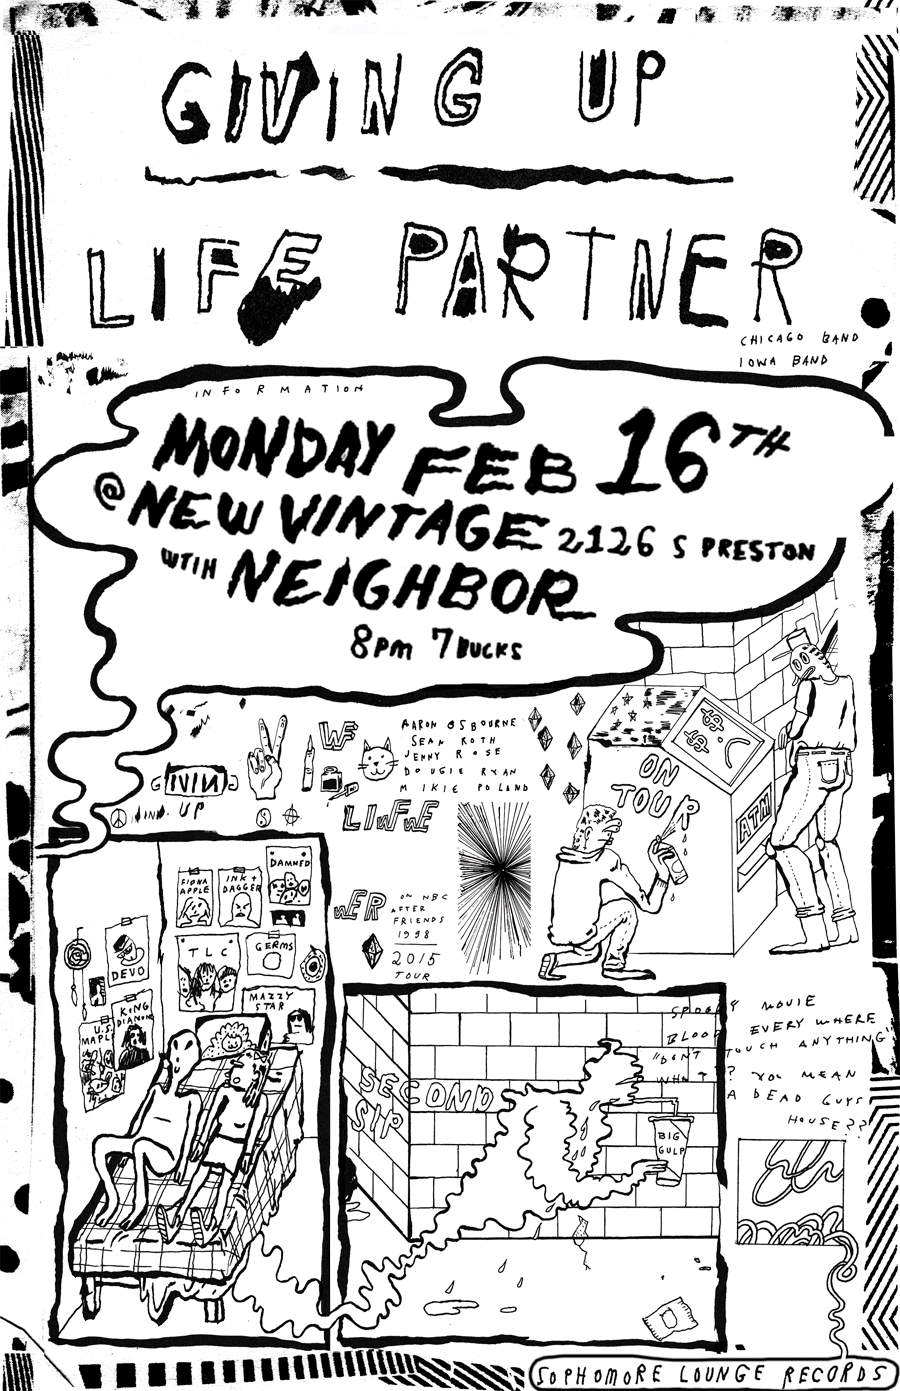 GIVING UP
LIFE PARTNER
CHICAGO BAND
IOWA BAND
INFORMATION
MONDAY FEB 16TH
@ NEW VINTAGE 2126 S PRESTON
WTIH NEIGHBOR
8PM 7 BUCKS
AARON OSBOURNE
SEAN ROTH
JENNY ROSE
DOUGIE RYAN
MIKIE POLAND
UP
ON
TOUR
ATM
ON NBC
AFTER
FRIENDS
1998
2015
TOUR
DAMNED
FIONA
APPLE
INK +
DAGGER
TLC
GERMS
DEVO
MAZZY
STAR
KING
DIAMOND
U.S.
MAPLE
SECOND
SIP
BIG
GULP
SPOOKY MOVIE
BLOOD EVERY WHERE
"DON'T TOUCH ANYTHING"
WHAT? YOU MEAN
A DEAD GUYS
HOUSE??
SOPHOMORE LOUNGE RECORDS